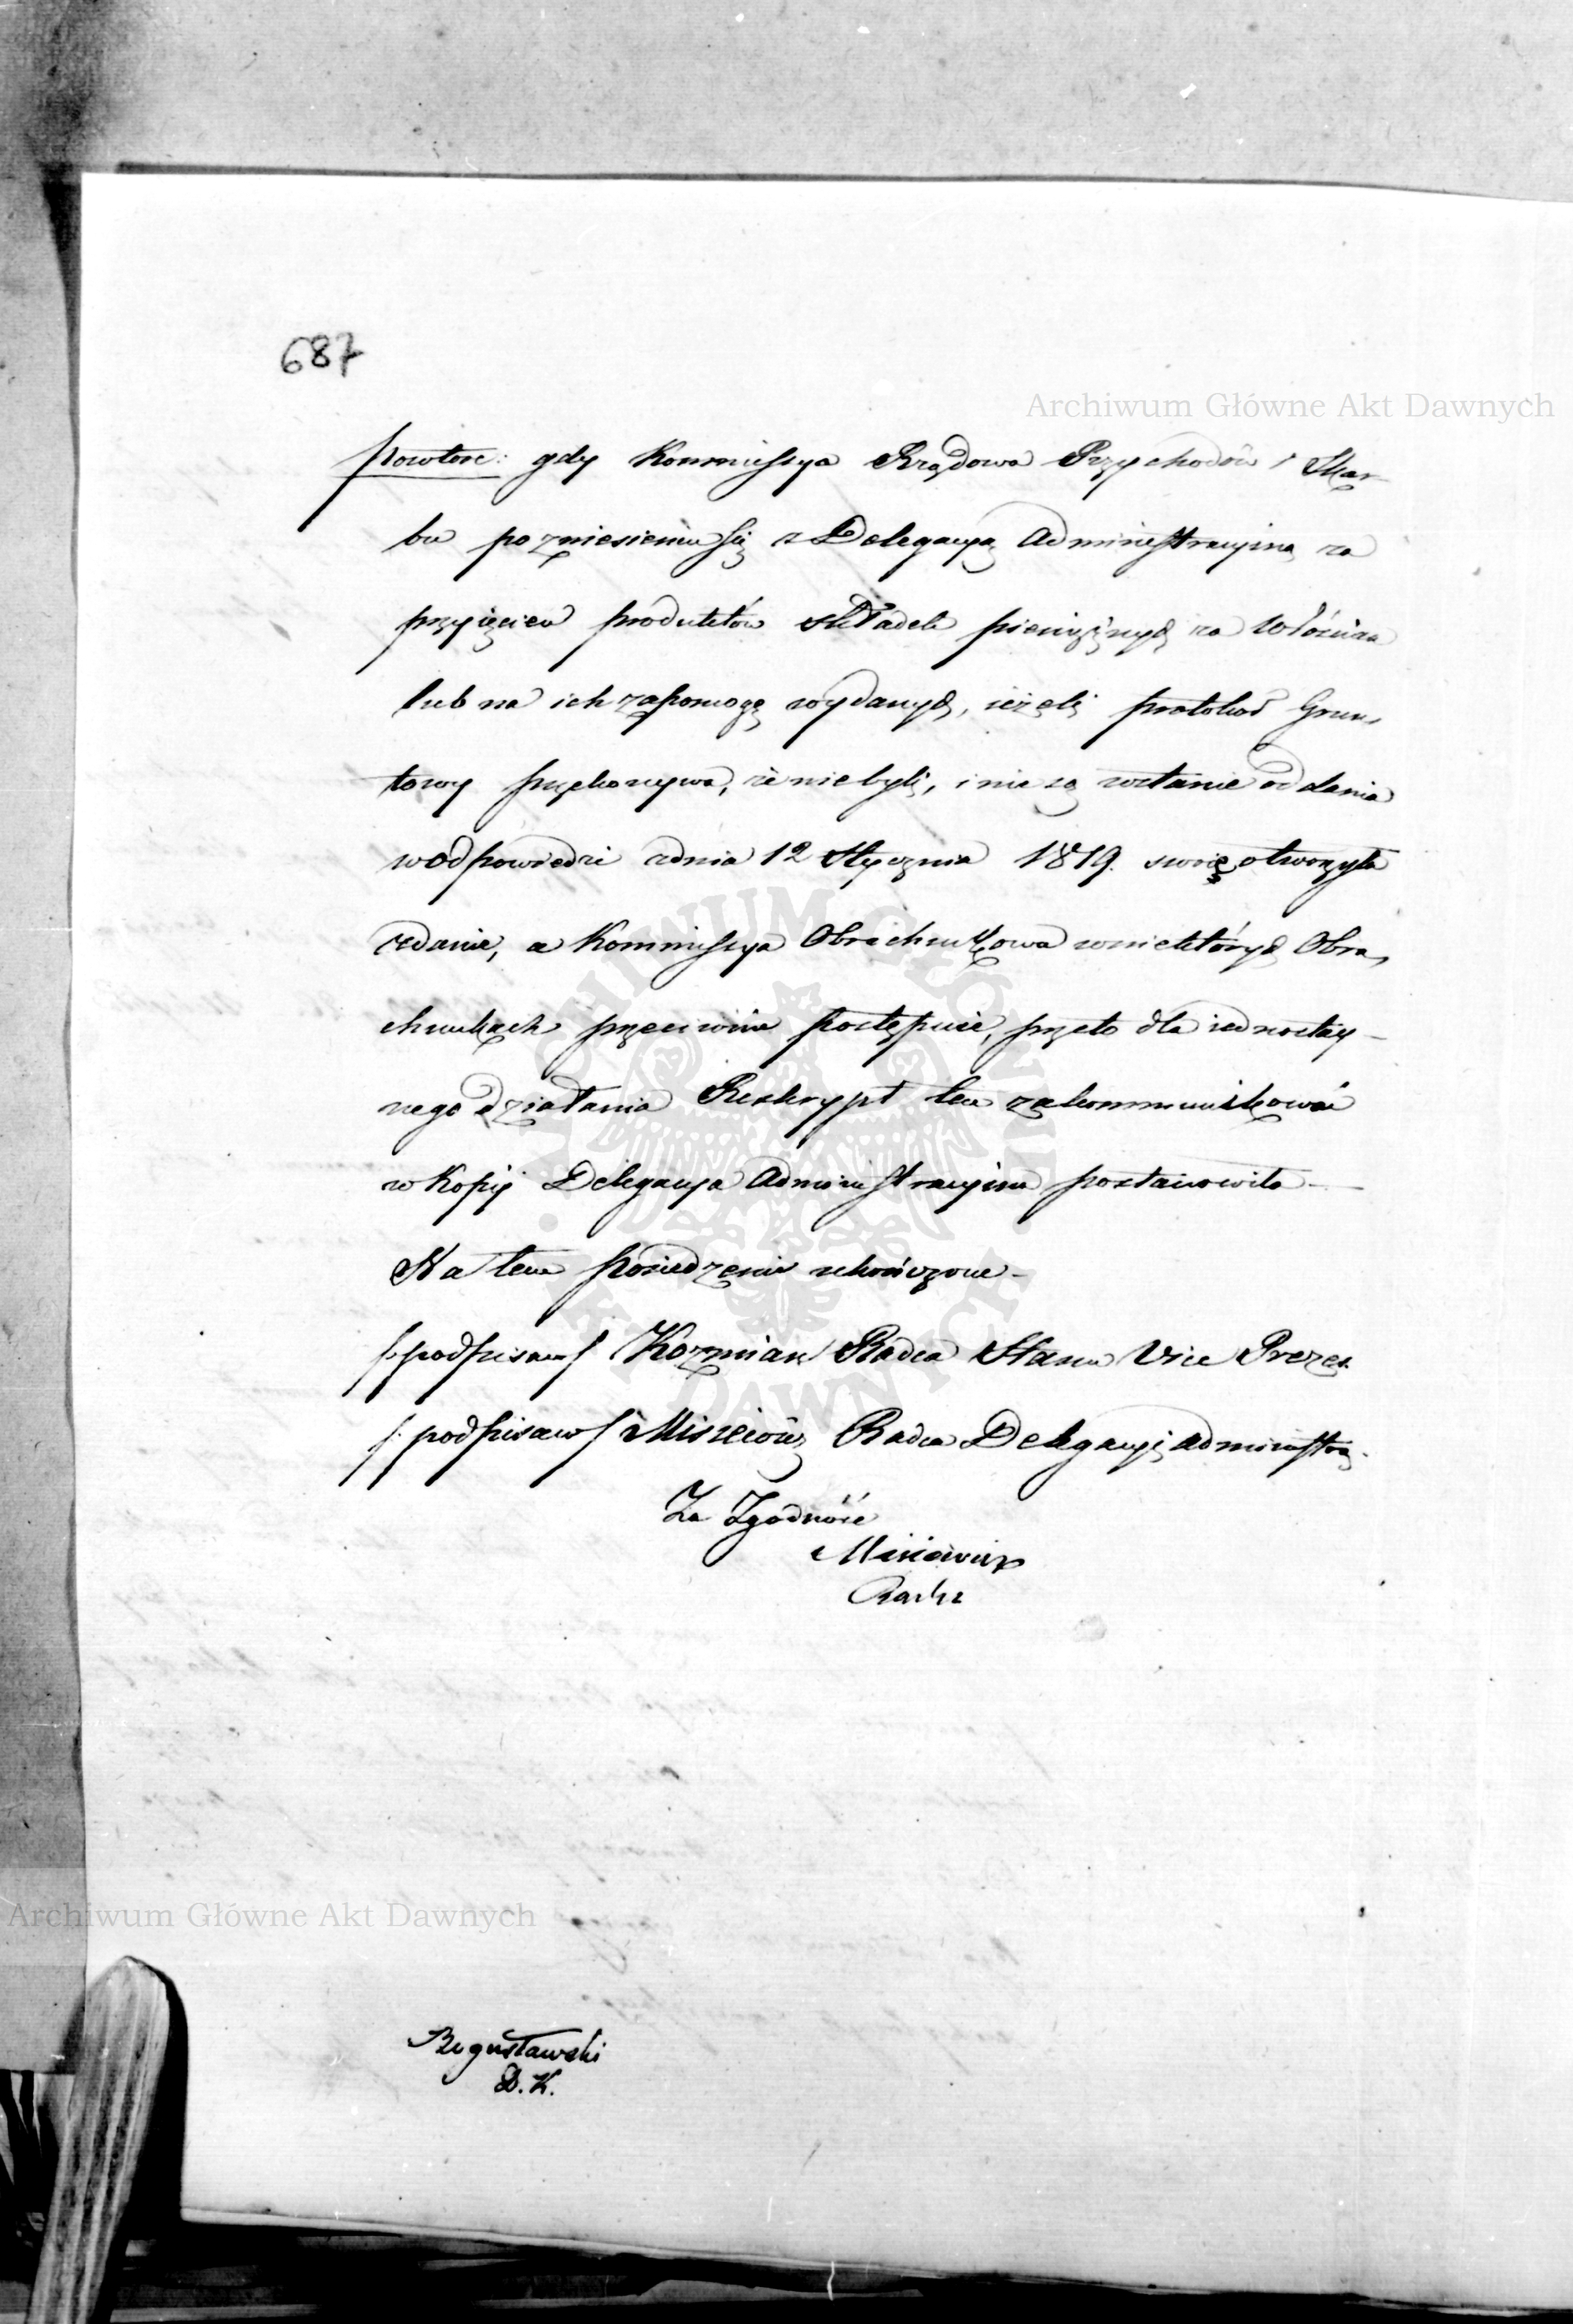 687
Archiwum Główne Akt Dawnych
powtore: gdy Kommissya Rządowa Przychodów i Skar-
bu po zniesieniu się z Delegacyą Administracyiną za
przyięciem produktów składek pieniężnych za Włościan
lub na ich zapomogę wydanych, ieżeli protokoł Grun-
towy przekonywa, że niebyli, i nie są wstanie oddania
w odpowiedzi zdnia 12 Stycznia 1819. swoię otworzyła
zdanie, a Kommissya Obrachunkowa wniektórych Obra-
chunkach przeciwnie postępuie, przeto dla iednostay-
nego działania Reskrypt ten zakommunikować
w Kopij Delegacya Administracyina postanowiła –
Na tem posiedzenie ukończone –
/podpisano/ Kozmian Radca Stanu Vice Prezes
/: podpisano/ Misiewicz Radca Delegacyi Administra.
Za Zgodność
Misiewicz
Archiwum Główne Akt Dawnych
Bogusławski
D. K.
ARCHIWUM GŁÓWNE AKT DAWNYCH